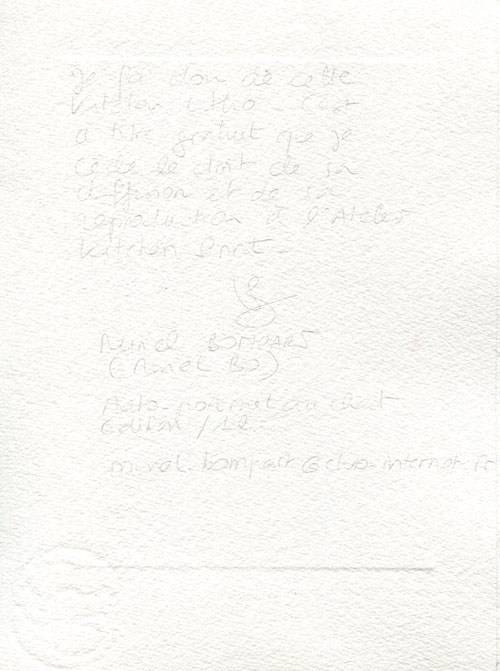 Je fais don de cette
Kitchen Litho. C'est
à titre gratuit que je
cède le droit de sa
diffusion et de sa
reproduction à l'Atelier
Kitchen Print.
Muriel BOMPART
(Muriel BO)
Auto-portrait au chat
Edition /12
muriel.bompart@club-internet.fr